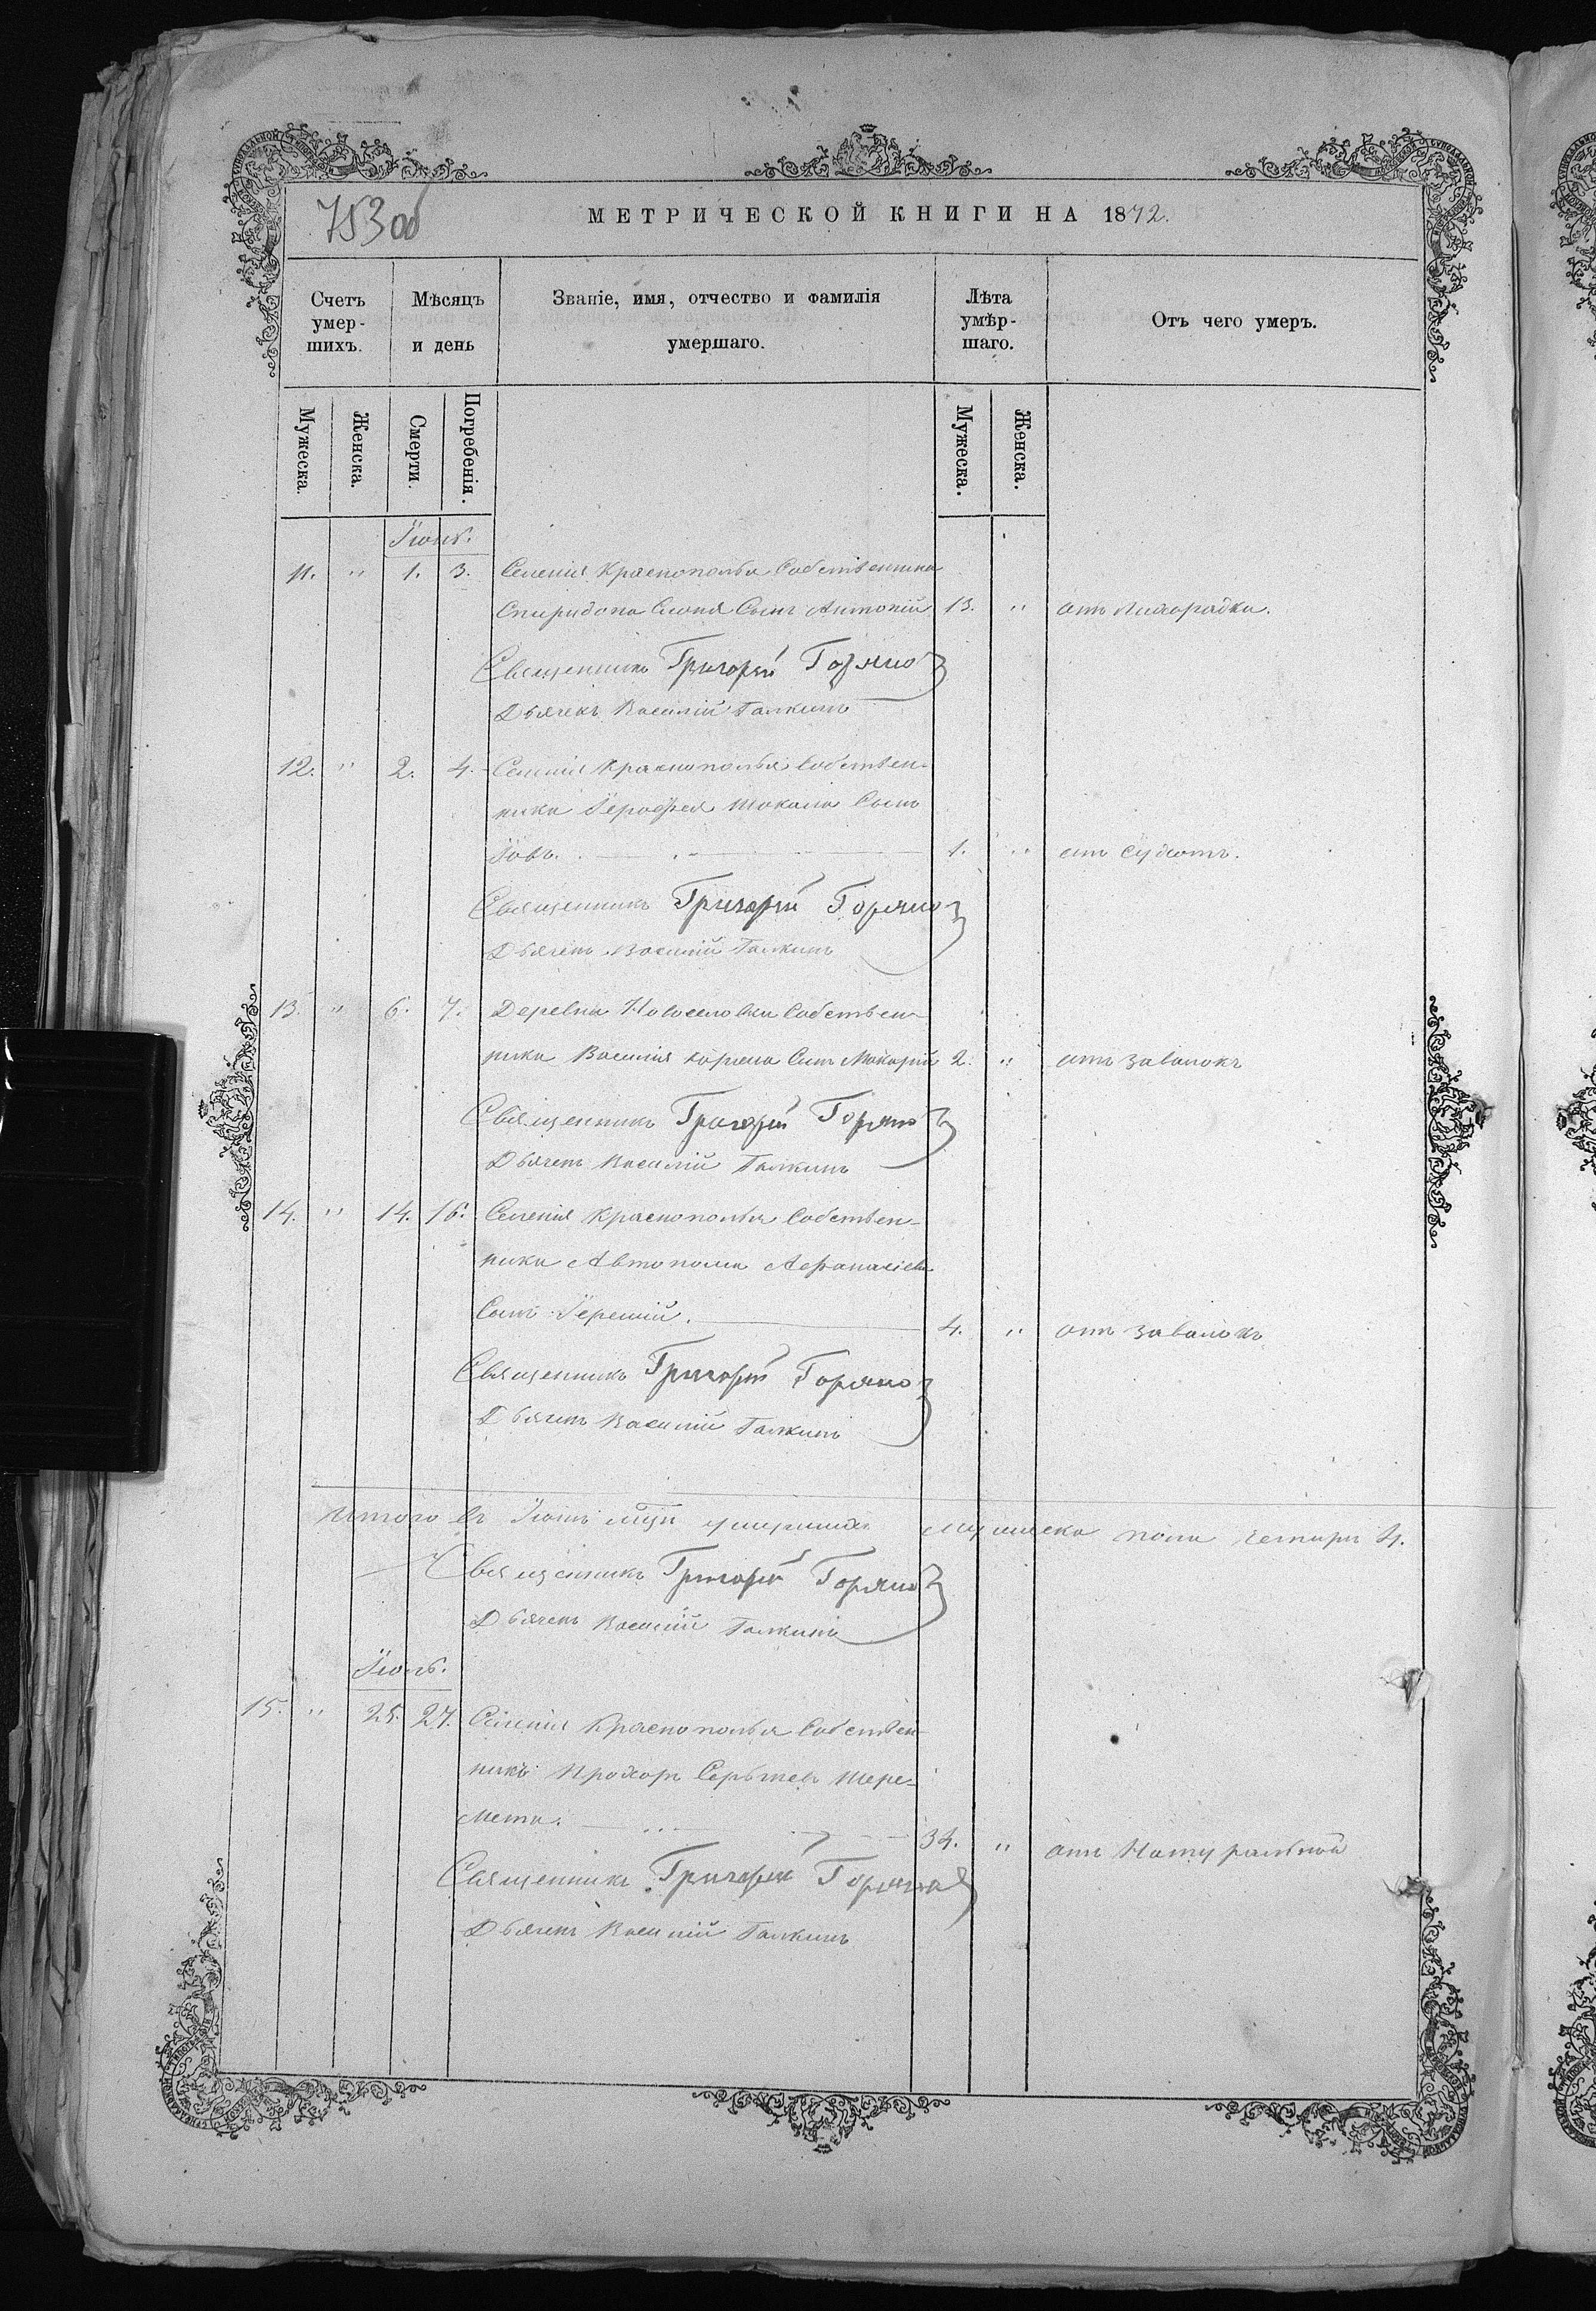 753 об
МЕТРИЧЕСКОЙ КНИГИ НА 1872.
Счетъ умер-шихъ.
Мѣсяцъ и день
Званіе, имя, отчество и фамилія умершаго.
Лѣта умѣр-шаго.
Отъ чего умеръ.
Мужеска.
Женска.
Смерти.
Погребенія.
Мужеска.
Женска.
Іюнь.
11. " 1. 3. Селенія Краснополья Собственника
Спиридона Сына Антоній 13. " отъ лихорадки.
Священникъ Григорій
Дьячекъ Василій Галкинъ
12. " 2. 4. Селенія Краснополья собствен-
ника Іерофея Сынъ
Іовъ. 1. " отъ сухотъ.
Священникъ Григорій
Дьячекъ Василій Галкинъ
13. " 6. 7. Деревни Новоселовки Собствен-
ника Василія Сынъ Макарій 2. " отъ завалокъ
Священникъ Григорій
Дьячекъ Василій Галкинъ
14. " 14. 16. Селенія Краснополья Собствен-
ника Автонома
Сынъ Іеремій. 4. " отъ завалокъ
Священникъ Григорій
Дьячекъ Василій Галкинъ
Итого въ Іюнѣ мцѣ умершихъ Мужеска пола четыри 4.
Священникъ Григорій
Дьячекъ Василій Галкинъ
Іюль.
15. " 25. 27. Селенія Краснополья Собствен-
никъ Прохоръ Шере-
мета. 34. " отъ Натуральной
Священникъ Григорій
Дьячекъ Василій Галкинъ